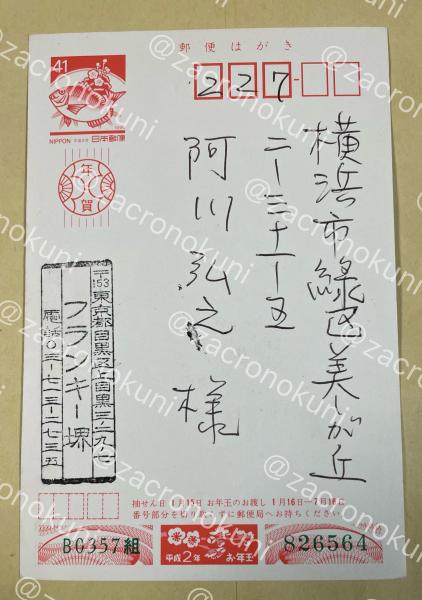 郵便はがき
41
NIPPON 平成2年 日本郵便
年賀
227
横浜市緑区美しが丘
二ー三十一ー五
阿川弘之様
〒153 東京都目黒区上目黒三ー二九ー七
フランキー堺
電話〇三ー七一三ー二七三五
抽せん日 1月15日 お年玉のお渡し 1月16日―7月16日
番号部分を切り取らずに郵便局へお持ちください
B0357組
平成2年
お年玉
826564
@zacronokuni